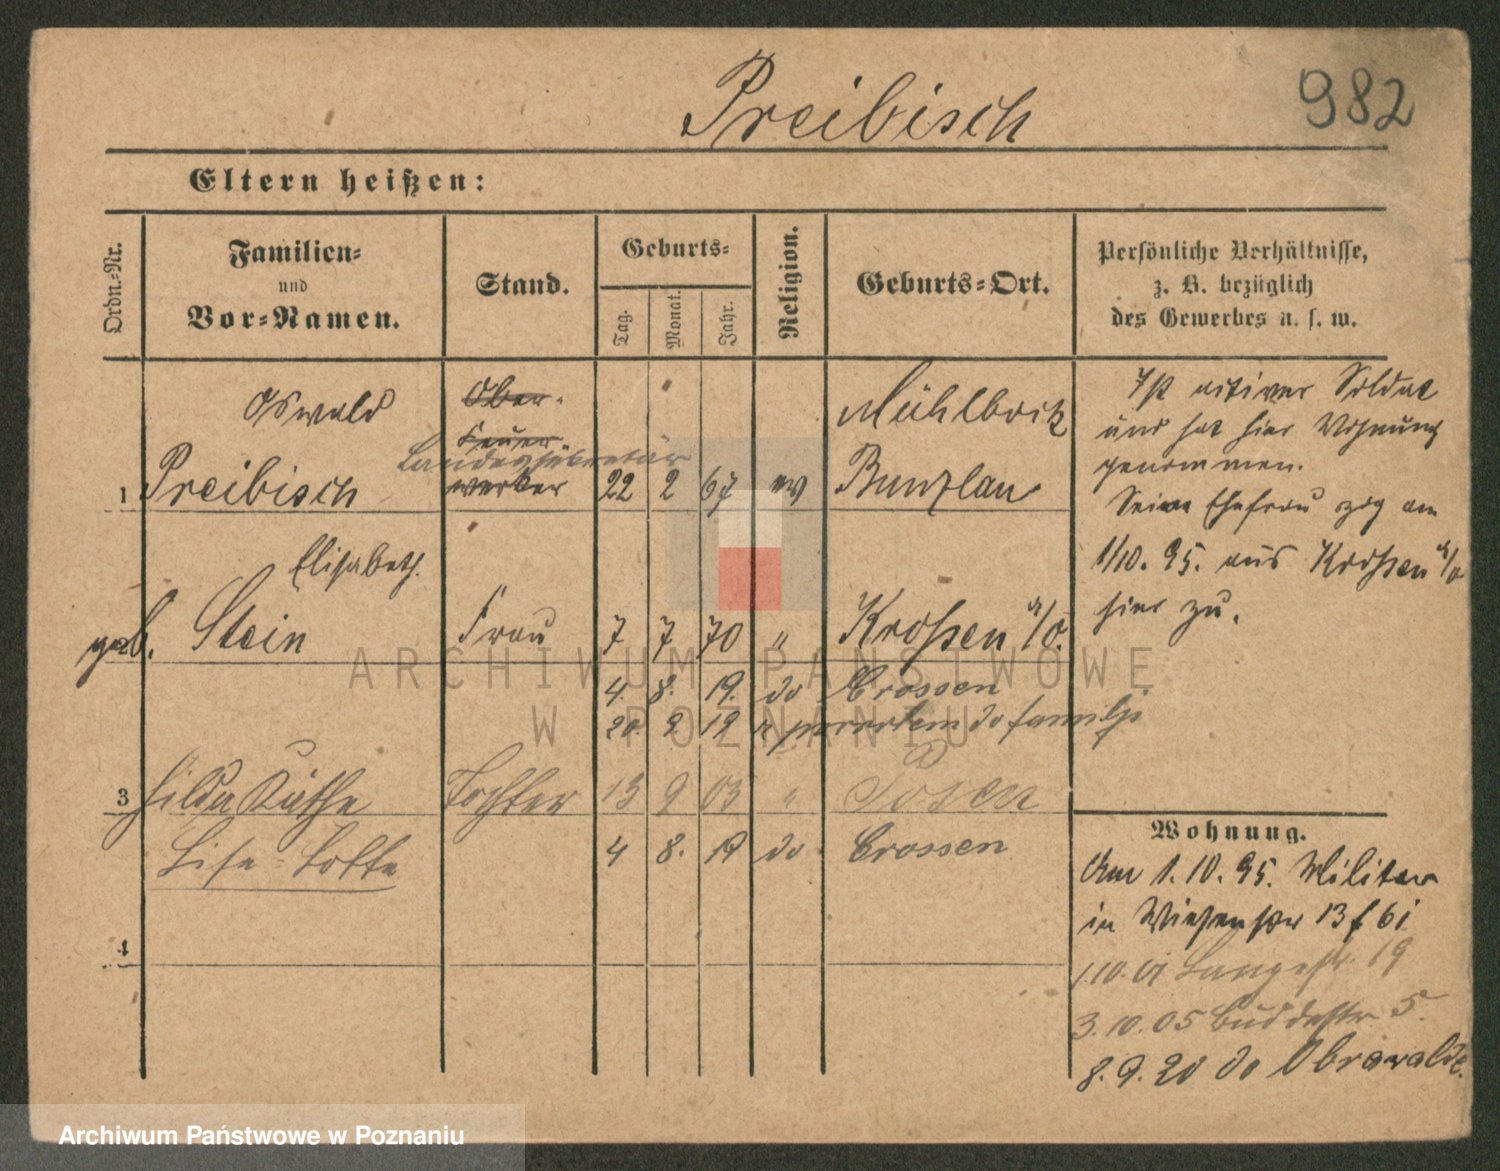 Preibisch
982
Eltern heißen:
Ordn.-Nr.
Familien-
und
Vor-Namen.
Stand.
Geburts-
Tag.
Monat.
Jahr.
Religion.
Geburts-Ort.
Persönliche Verhältnisse,
z. B. bezüglich
des Gewerbes u. s. w.
Oswald
Ober-
Feuer-
Landessekretär
werker
1 Preibisch 22 2 67 ev
Mühlbock
Bunzlau
Ist aktiver Soldat
und hat hier Wohnung
genommen.
Seine Ehefrau zog am
1/10. 95. aus Krossen a/O
hier zu.
Elisabeth
geb. Stein Frau 7 7 70 " Krossen a/O.
4. 8. 19. do Crossen
20. 9 19 z powrotem do familji
3 Hilda Käthe Tochter 13 9 03 " Posen
Lise-Lotte 4 8. 19 do Crossen
4
Wohnung.
Am 1. 10. 95. Militär
in Wiesenstr 13 b 61
1.10.01 Langestr. 19
3.10.05 Buddestr 5.
8. 9. 20 do Obrawalde.
ARCHIWUM PAŃSTWOWE
W POZNANIU
Archiwum Państwowe w Poznaniu